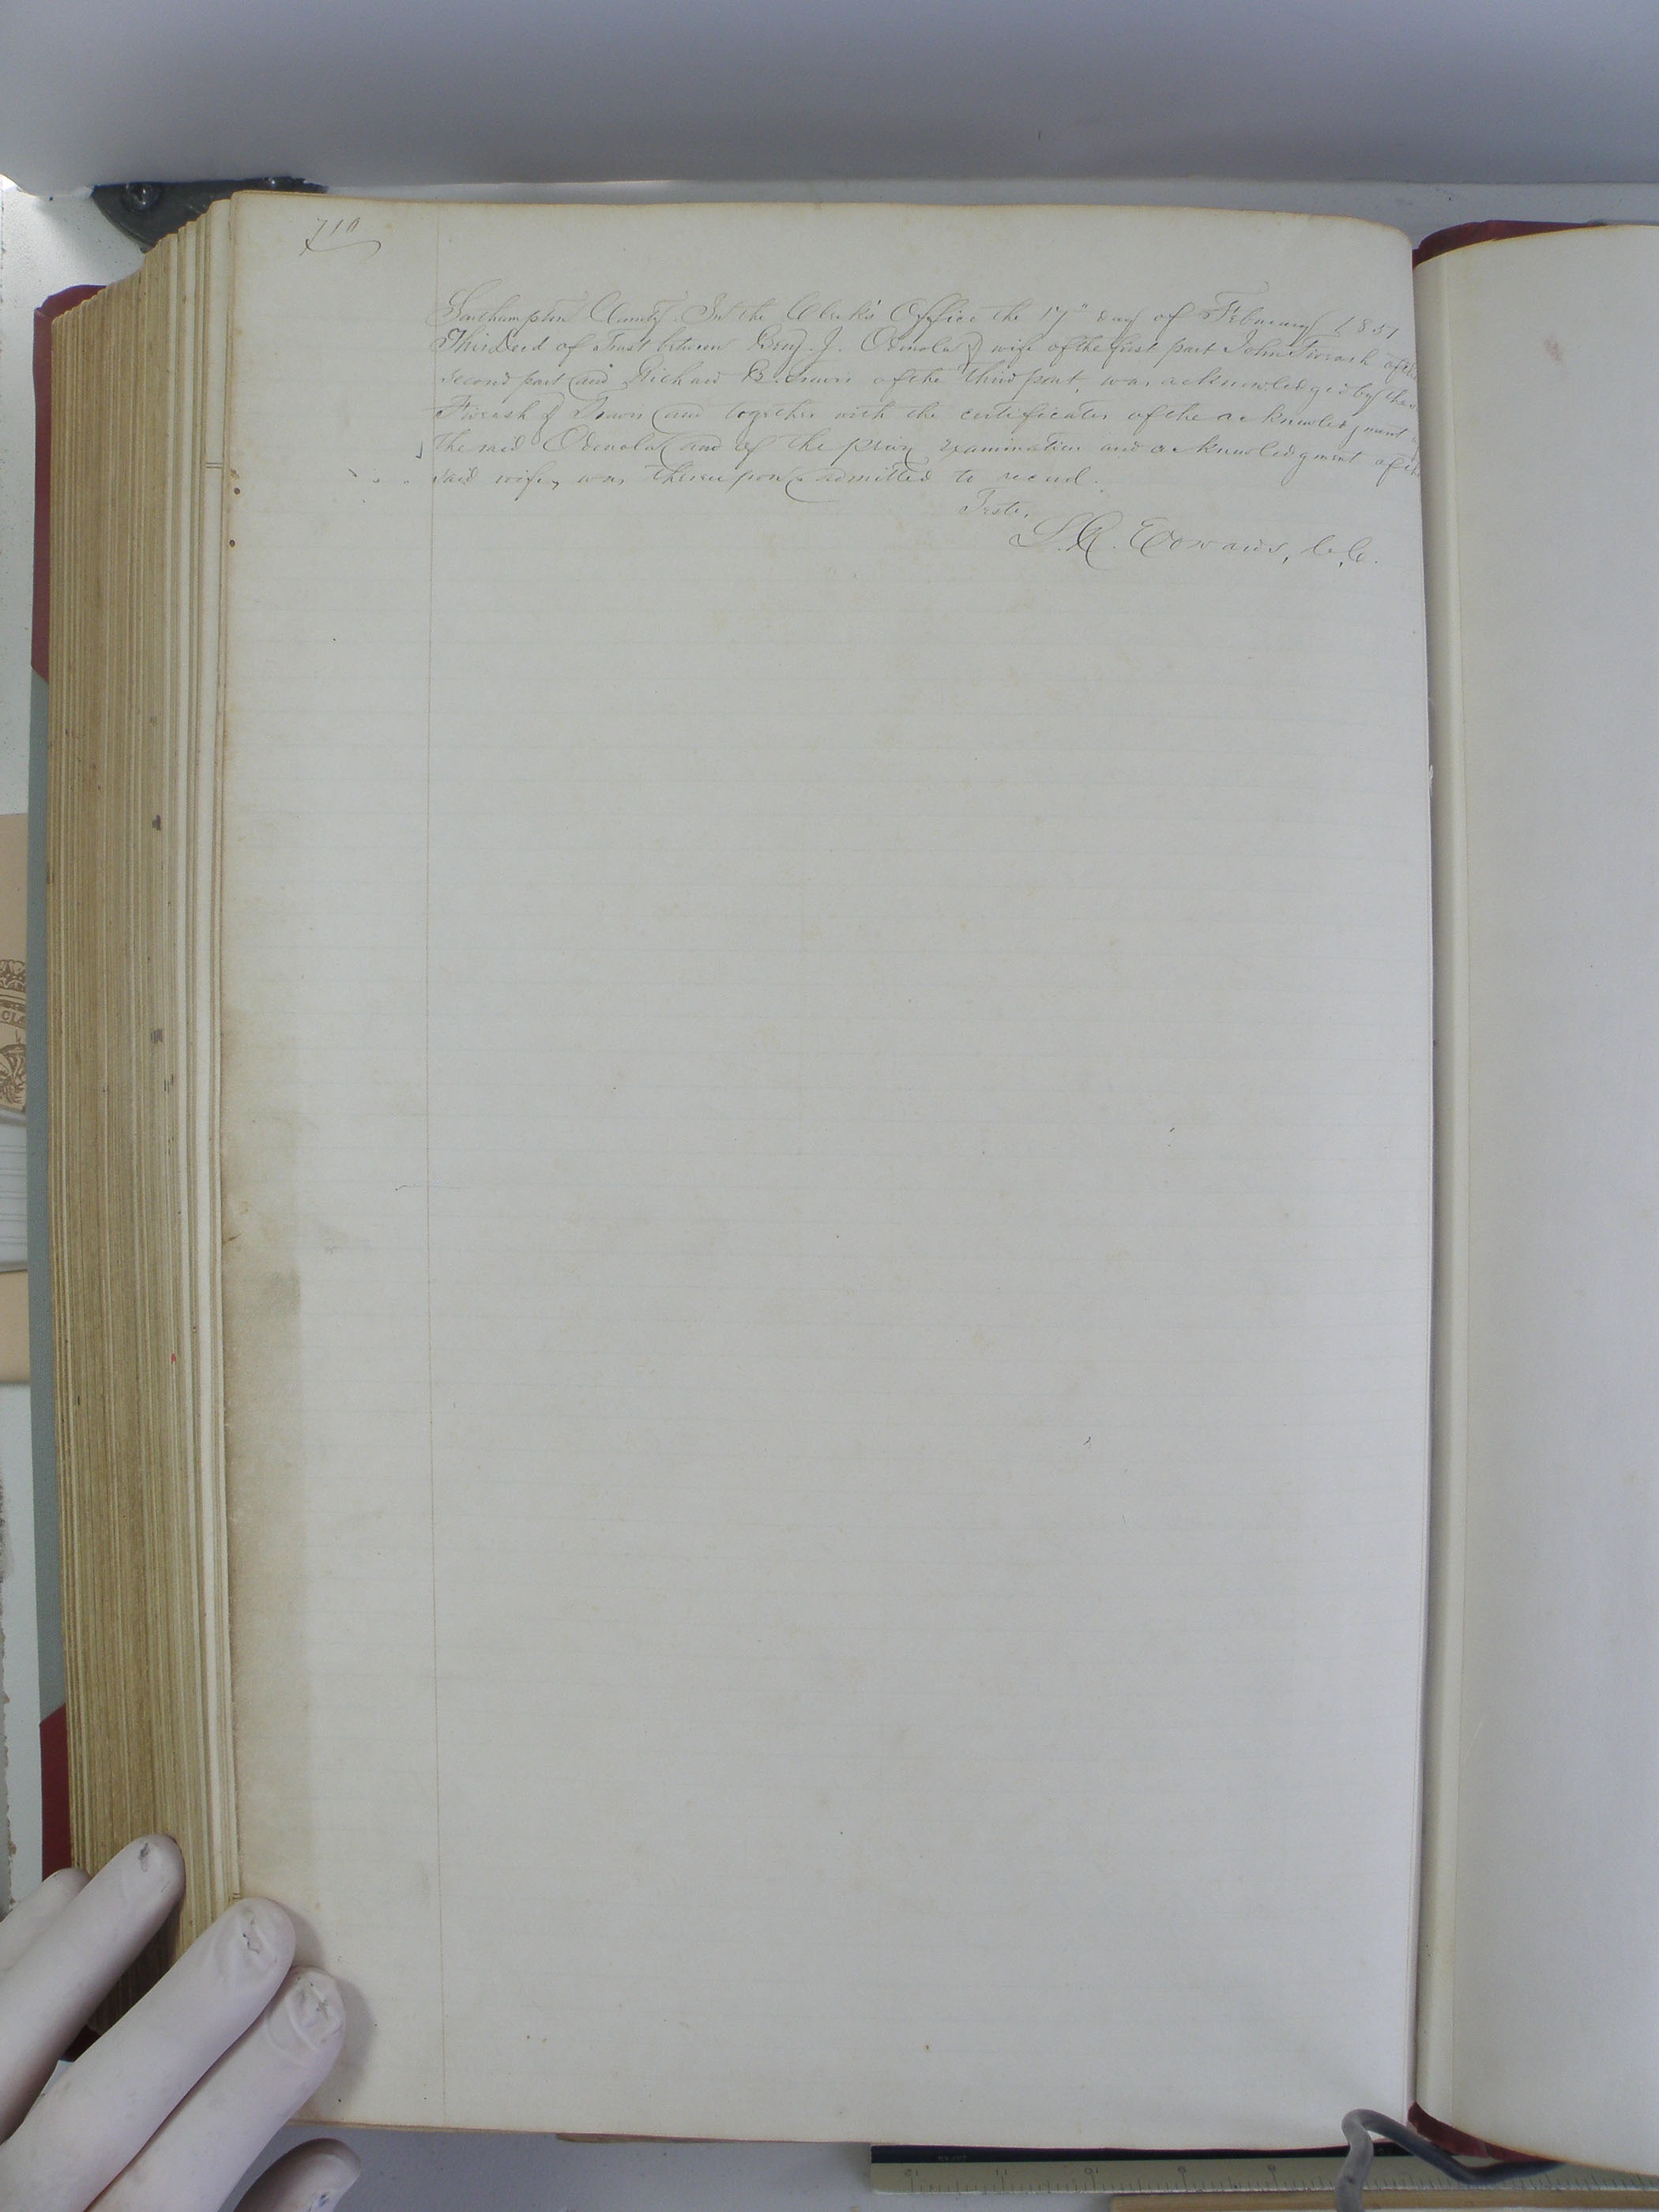 710
Southampton County. In the Clerk's Office the 17" day of February 1851
This Deed of Trust between Benj. J. Odenola & wife of the first part John of the
second part and Richard B. of the third part, was acknowledged by the
& and together with the certificates of the acknowledgment
the said Odenola and of the privy examination and acknowledgment of the
said wife, was thereupon admitted to record.
Teste,
L. R. Edwards, C. C.